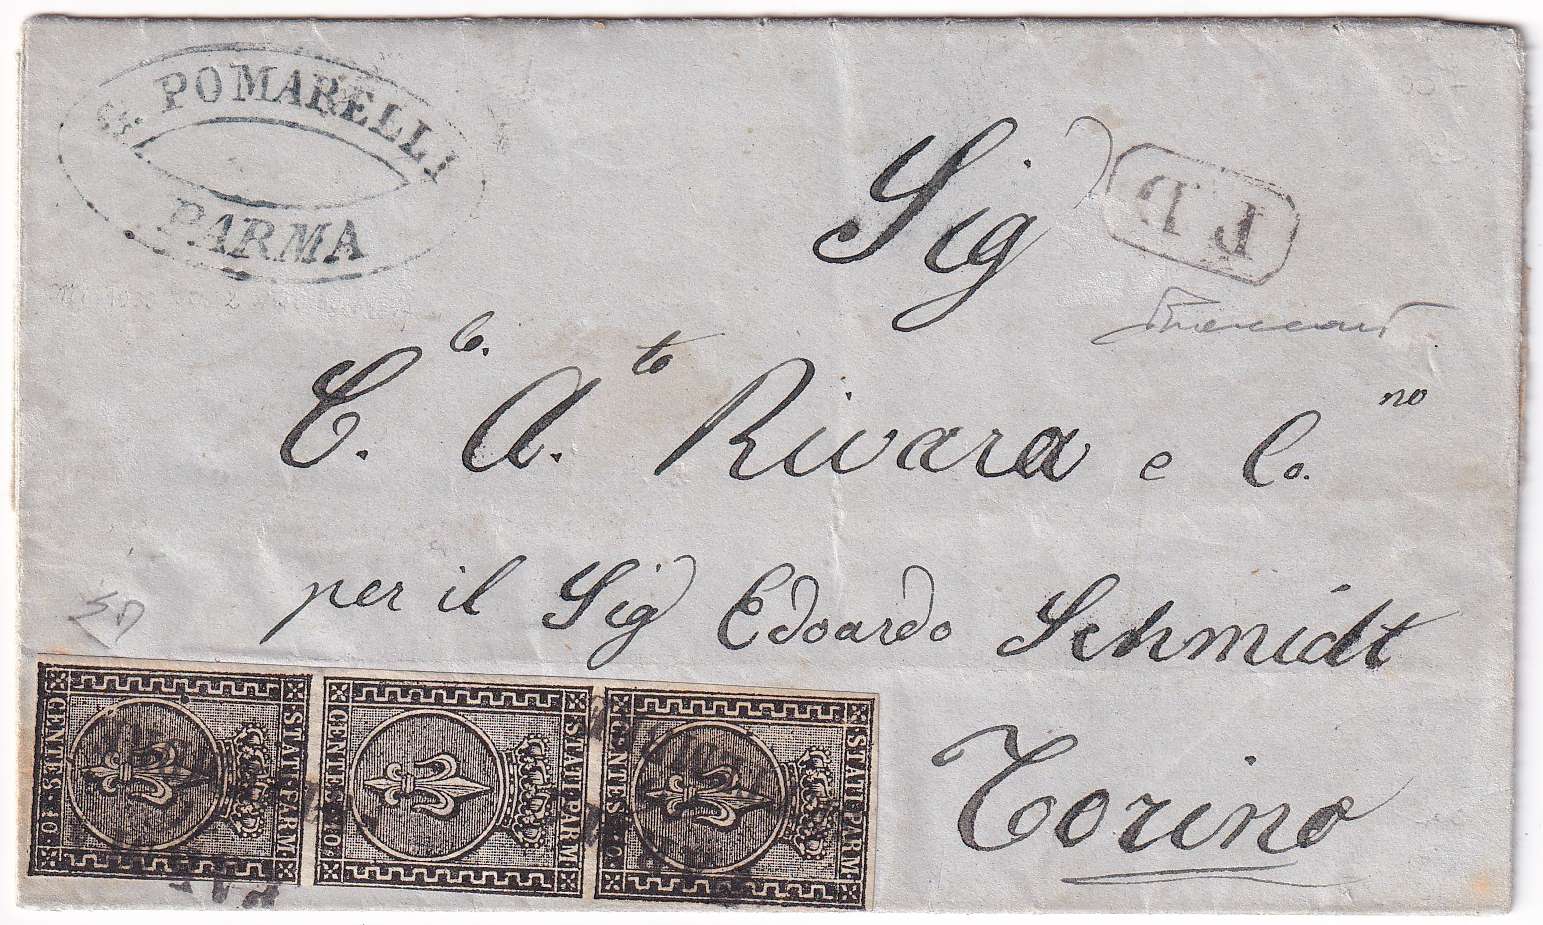 G. POMARELLI
PARMA
P. D.
Sig
C. A.to Rivara e Co.
no
per il Sig Edoardo Schmidt
Torino
STATI PARM.
CENTES. 10.
STATI PARM.
CENTES. 10.
STATI PARM.
CENTES. 10.